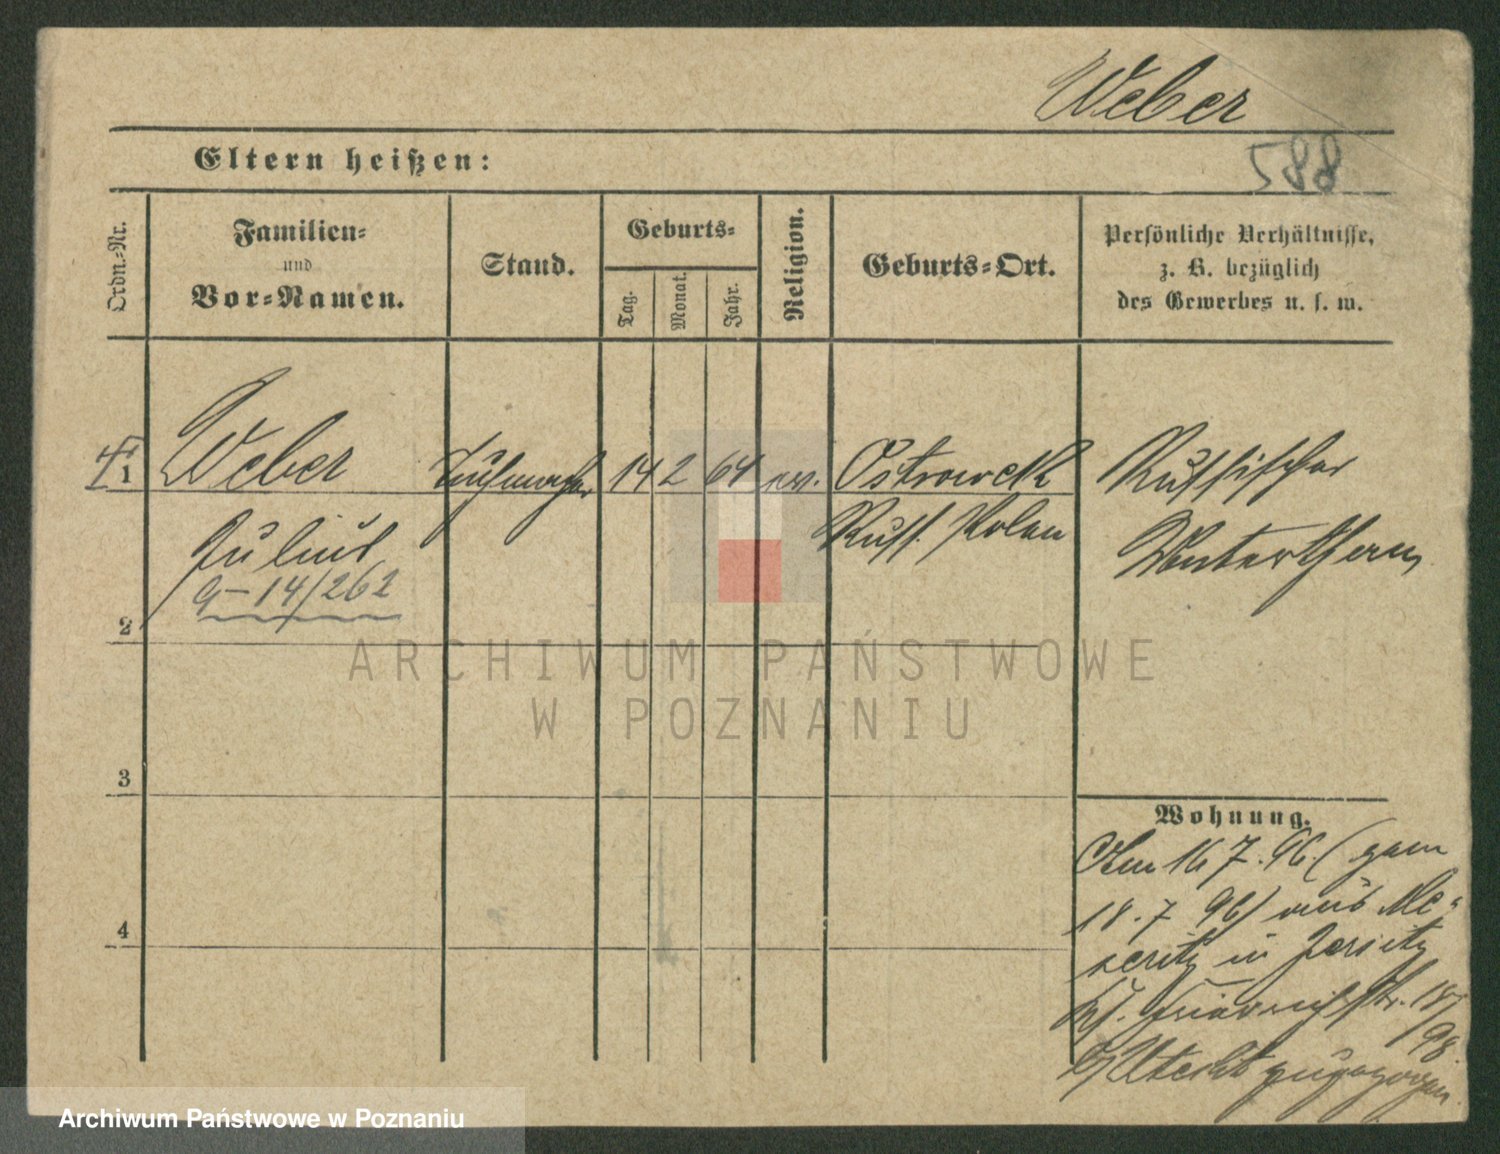 Weber
Eltern heißen:
588
Ordn.-Nr.
Familien-
und
Vor-Namen.
Stand.
Geburts-
Tag.
Monat.
Jahr.
Religion.
Geburts-Ort.
Persönliche Verhältnisse,
z. B. bezüglich
des Gewerbes u. s. w.
1
Weber
Tuchmacher
14
2
64
ev.
Ostrowek
Russischer
Julius
Russ. Polen
Unterthan
9-14/262
2
3
4
Wohnung.
Am 16 7. 96. (gem
18. 7 96) aus Me-
seritz in Jersitz
Friedrichstr. 18
98.
b/ Utecht zugezogen.
ARCHIWUM PAŃSTWOWE
W POZNANIU
Archiwum Państwowe w Poznaniu